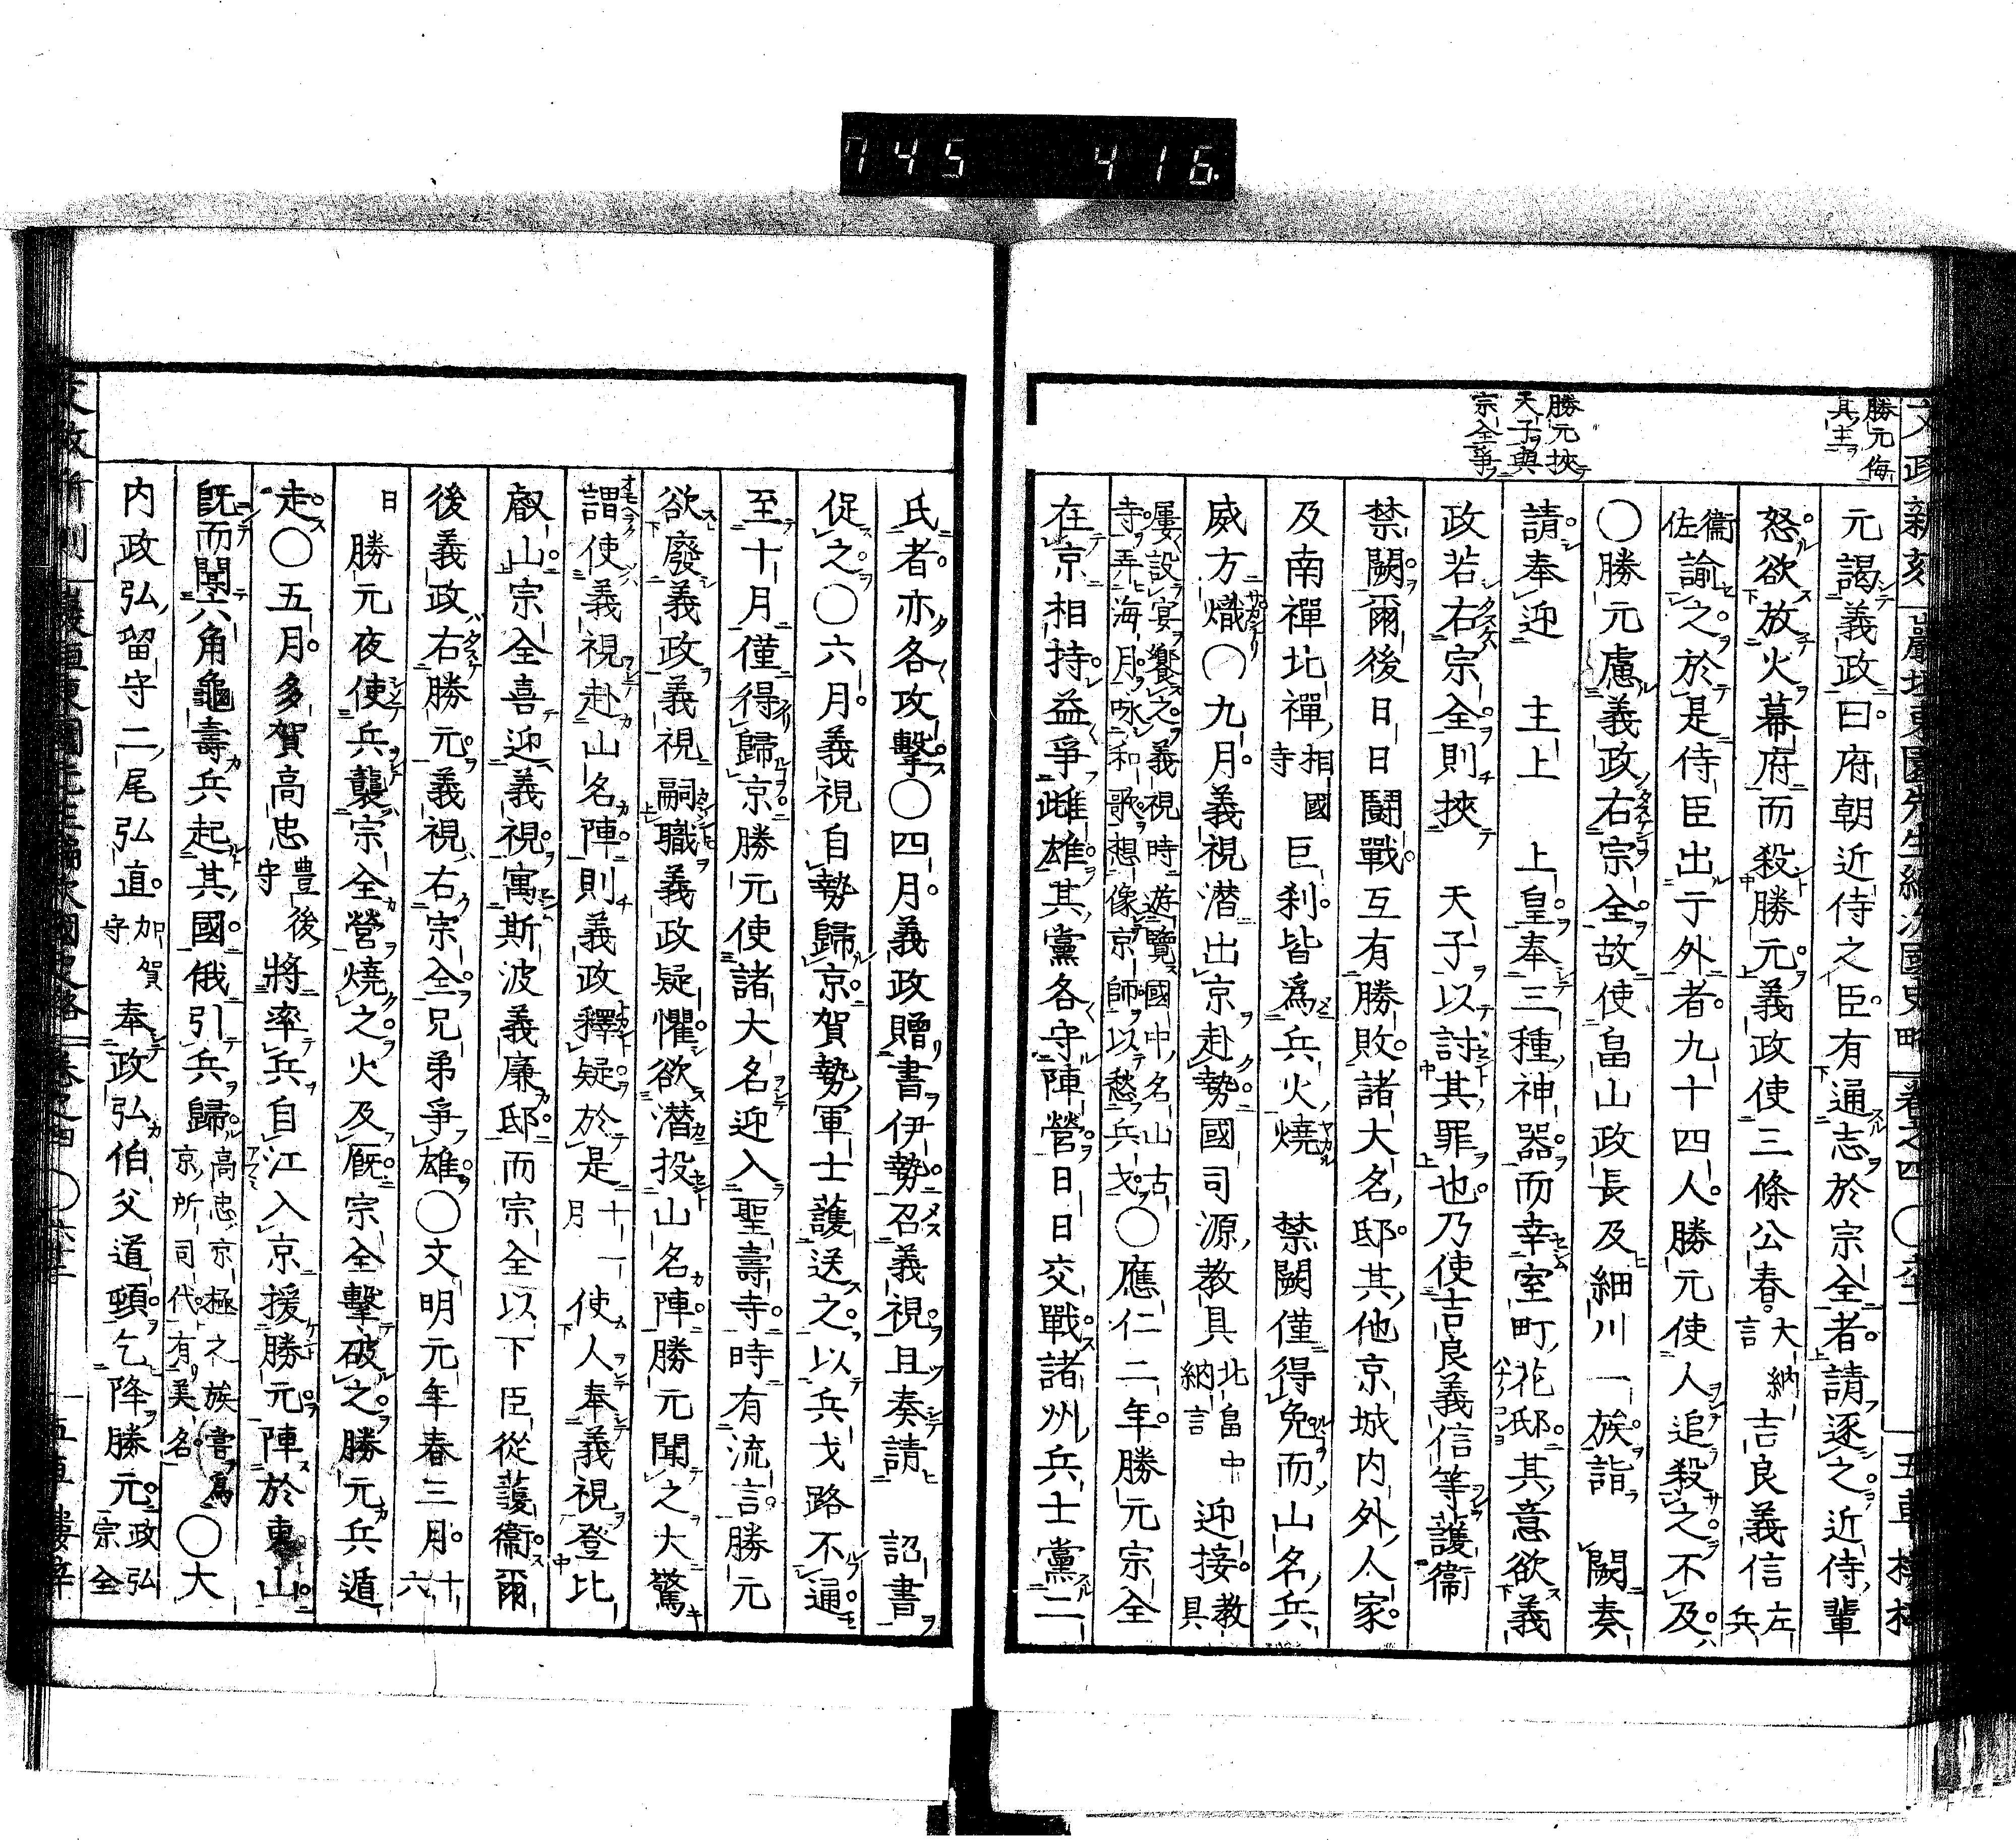 745 416.
勝元侮
其主
勝元挾
天子與
宗全爭
元謁義政曰府朝近侍之臣有通志於宗全者請逐之近侍輩
怒欲放火幕府而殺勝元義政使三條公春大納言吉良義信左兵
衞佐諭之於是侍臣出于外者九十四人勝元使人追殺之不及
〇勝元慮義政右宗全故使畠山政長及細川一族詣 闕奏
請奉迎 主上 上皇奉三種神器而幸室町花邸其意欲義
政若右宗全則挾 天子以討其罪也乃使吉良義信等護衞
禁闕爾後日日鬪戰互有勝敗諸大名邸其他京城內外人家
及南禪北禪相國寺巨刹皆爲兵火燒 禁闕僅得免而山名兵
威方熾〇九月義視潜出京赴勢國司源教具北畠中納言迎接教具
屢設宴饗之義視時遊覽國中名山古寺弄海月咏和歌想像京師以愁兵戈〇應仁二年勝元宗全
在京相持益爭雌雄其黨各守陣營日日交戰諸州兵士黨二
氏者亦各攻擊〇四月義政贈書伊勢召義視且奏請 詔書
促之〇六月義視自勢歸京賀勢軍士護送之以兵戈路不通
至十月僅得歸京勝元使諸大名迎入聖壽寺時有流言勝元
欲廢義政義視嗣職義政疑懼欲潜投山名陣勝元聞之大驚
謂使義視赴山名陣則義政釋疑於是十一月使人奉義視登比
叡山宗全喜迎義視寓斯波義廉邸而宗全以下臣從護衞爾
後義政右勝元義視右宗全兄弟爭雄〇文明元年春三月十六
日勝元夜使兵襲宗全營燒之火及厩宗全擊破之勝元兵遁
走〇五月多賀高忠豊後守將率兵自江入京援勝元陣於東山
旣而聞六角龜壽兵起其國俄引兵歸高忠京極之族嘗爲京所司代有美名〇大
內政弘留守二尾弘直加賀守奉政弘伯父道頓乞降勝元政弘宗全